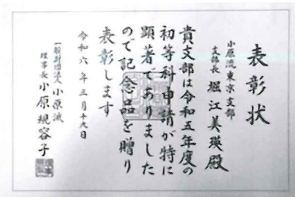 表彰状
小原流 東京支部
支部長 堀江美瑛殿
貴支部は令和五年度の
初等科申請が特に
顕著でありました
ので記念品を贈り
表彰します
令和六年三月十九日
一般財団法人 小原流
理事長 小原規容子